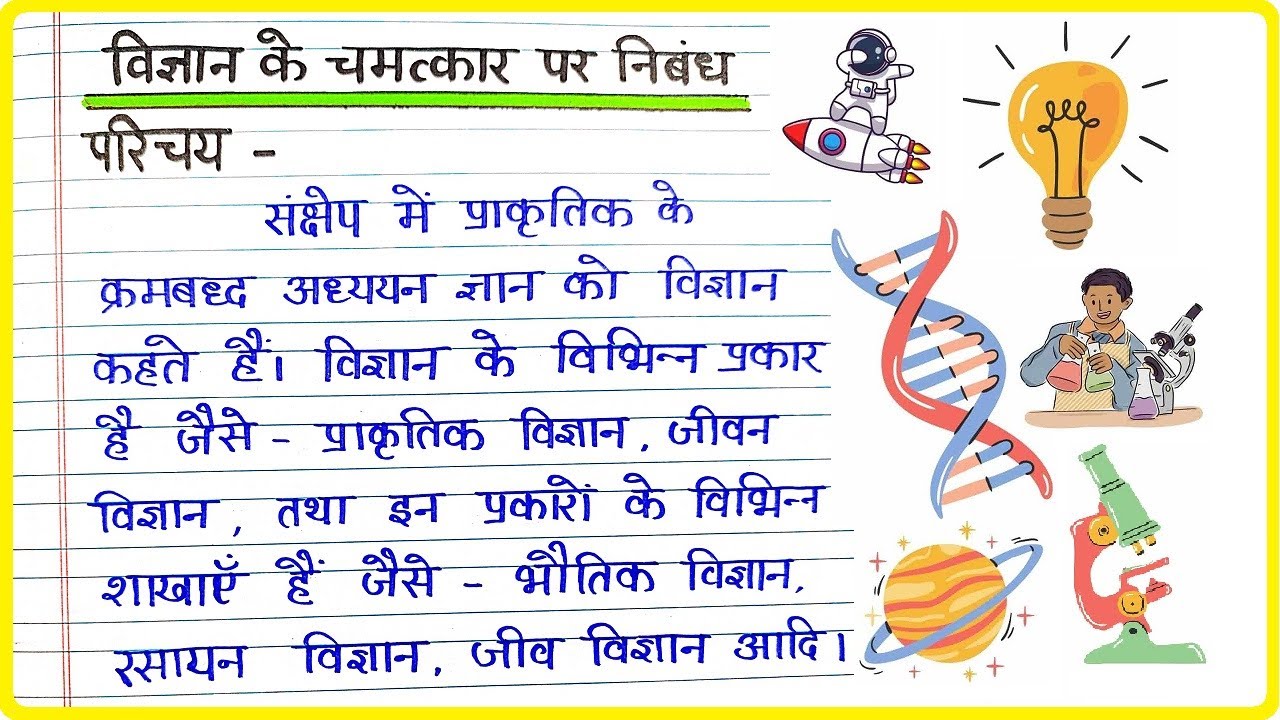 विज्ञान के चमत्कार पर निबंध
परिचय -
संक्षेप में प्राकृतिक के
क्रमबध्द अध्ययन ज्ञान को विज्ञान
कहते हैं। विज्ञान के विभिन्न प्रकार
है जैसे - प्राकृतिक विज्ञान, जीवन
विज्ञान, तथा इन प्रकारों के विभिन्न
शाखाएँ हैं जैसे - भौतिक विज्ञान,
रसायन विज्ञान, जीव विज्ञान आदि।